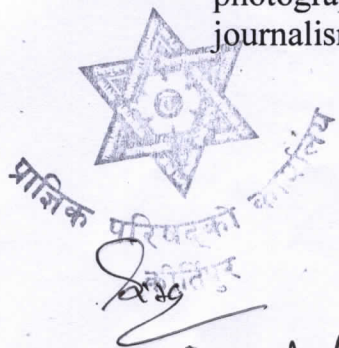 photograp
journalism
प्राज्ञिक परिषद्को कार्यालय
कीर्तिपुर